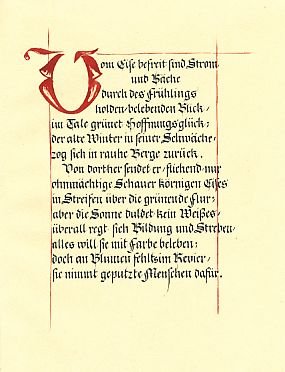 Vom Eise befreit sind Strom
und Bäche
durch des Frühlings
holden, belebenden Blick,
im Tale grünet Hoffnungsglück;
der alte Winter in seiner Schwäche,
zog sich in rauhe Berge zurück.
Von dorther sendet er, fliehend, nur
ohnmächtige Schauer körnigen Eises
in Streifen über die grünende Flur,
aber die Sonne duldet kein Weißes,
überall regt sich Bildung und Streben,
alles will sie mit Farbe beleben;
doch an Blumen fehlts im Revier,
sie nimmt geputzte Menschen dafür.